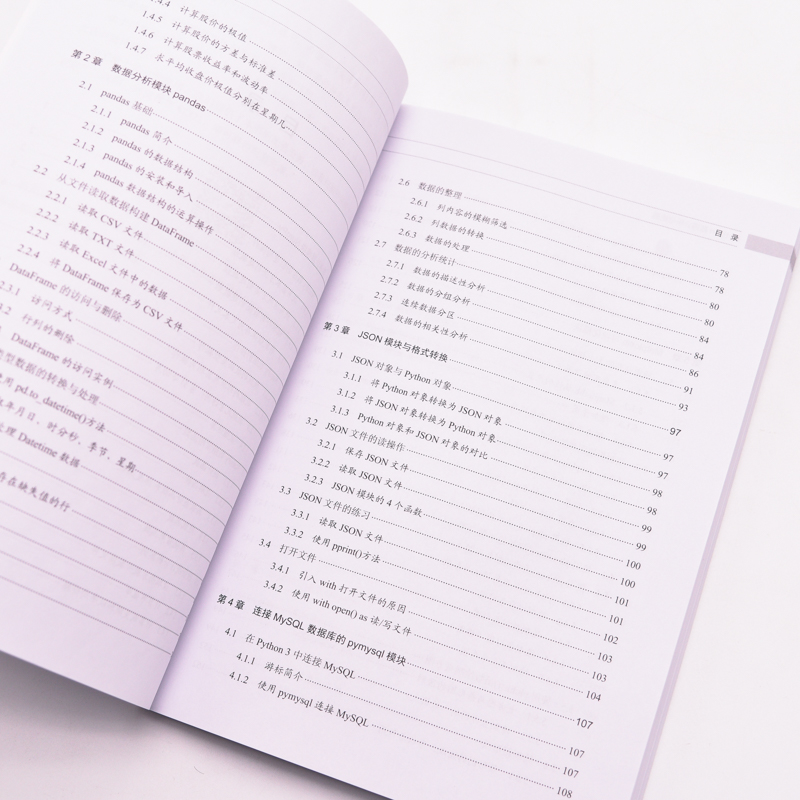 1.4.4 计算股价的极值
1.4.5 计算股价的方差与标准差
1.4.6 计算股票收益率和波动率
1.4.7 求平均收盘价极值分别在星期几
第 2 章 数据分析模块 pandas
2.1 pandas 基础
2.1.1 pandas 简介
2.1.2 pandas 的数据结构
2.1.3 pandas 的安装和导入
2.1.4 pandas 数据结构的运算操作
2.2 从文件读取数据构建 DataFrame
2.2.1 读取 CSV 文件
2.2.2 读取 TXT 文件
2.2.3 读取 Excel 文件中的数据
2.2.4 将 DataFrame 保存为 CSV 文件
DataFrame 的访问与删除
2.3.1 访问方式
3.2 行列的删除
DataFrame 的访问实例
类型数据的转换与处理
使用 pd.to_datetime()方法
取年月日、时分秒、季节、星期
处理 Datetime 数据
存在缺失值的行
目 录
2.6 数据的整理 78
2.6.1 列内容的模糊筛选 78
2.6.2 列数据的转换 80
2.6.3 数据的处理 80
2.7 数据的分析统计 84
2.7.1 数据的描述性分析 84
2.7.2 数据的分组分析 86
2.7.3 连续数据分区 91
2.7.4 数据的相关性分析 93
第 3 章 JSON 模块与格式转换 97
3.1 JSON 对象与 Python 对象 97
3.1.1 将 Python 对象转换为 JSON 对象 97
3.1.2 将 JSON 对象转换为 Python 对象 98
3.1.3 Python 对象和 JSON 对象的对比 98
3.2 JSON 文件的读操作 99
3.2.1 保存 JSON 文件 99
3.2.2 读取 JSON 文件 100
3.2.3 JSON 模块的 4 个函数 100
3.3 JSON 文件的练习 101
3.3.1 读取 JSON 文件 101
3.3.2 使用 pprint()方法 102
3.4 打开文件 103
3.4.1 引入 with 打开文件的原因 103
3.4.2 使用 with open() as 读/写文件 104
第 4 章 连接 MySQL 数据库的 pymysql 模块 107
4.1 在 Python 3 中连接 MySQL 107
4.1.1 游标简介 107
4.1.2 使用 pymysql 连接 MySQL 108